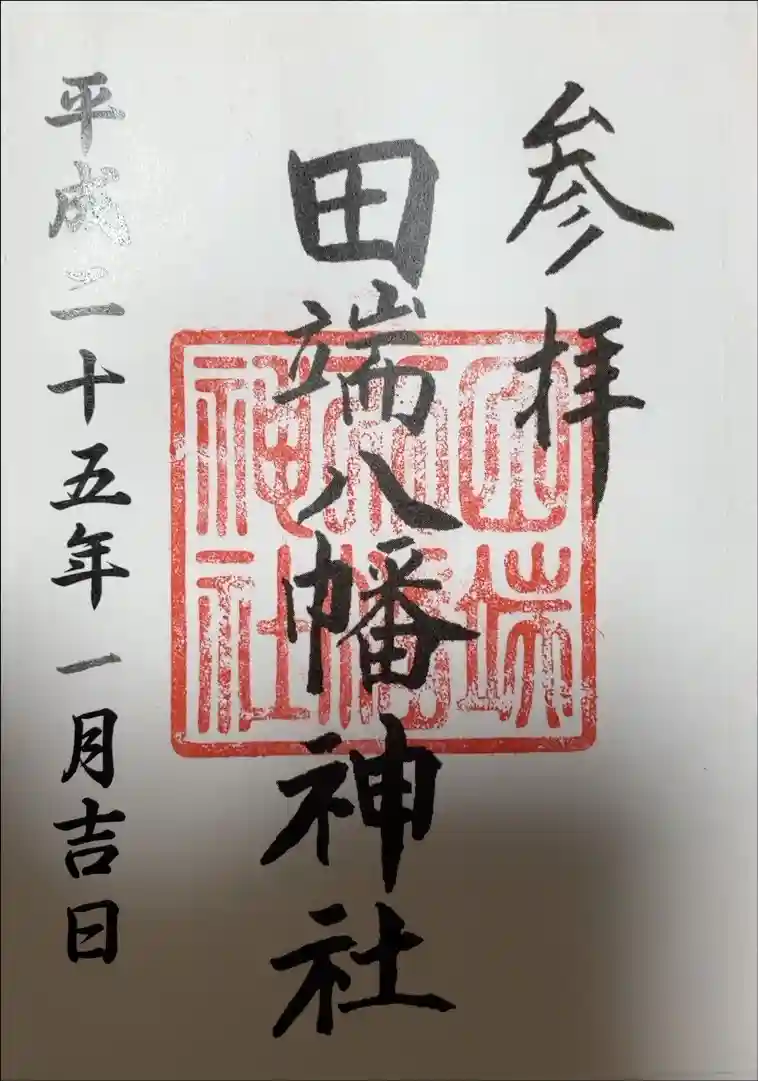 参拝
田端八幡神社
田端
八幡
神社
平成二十五年一月吉日